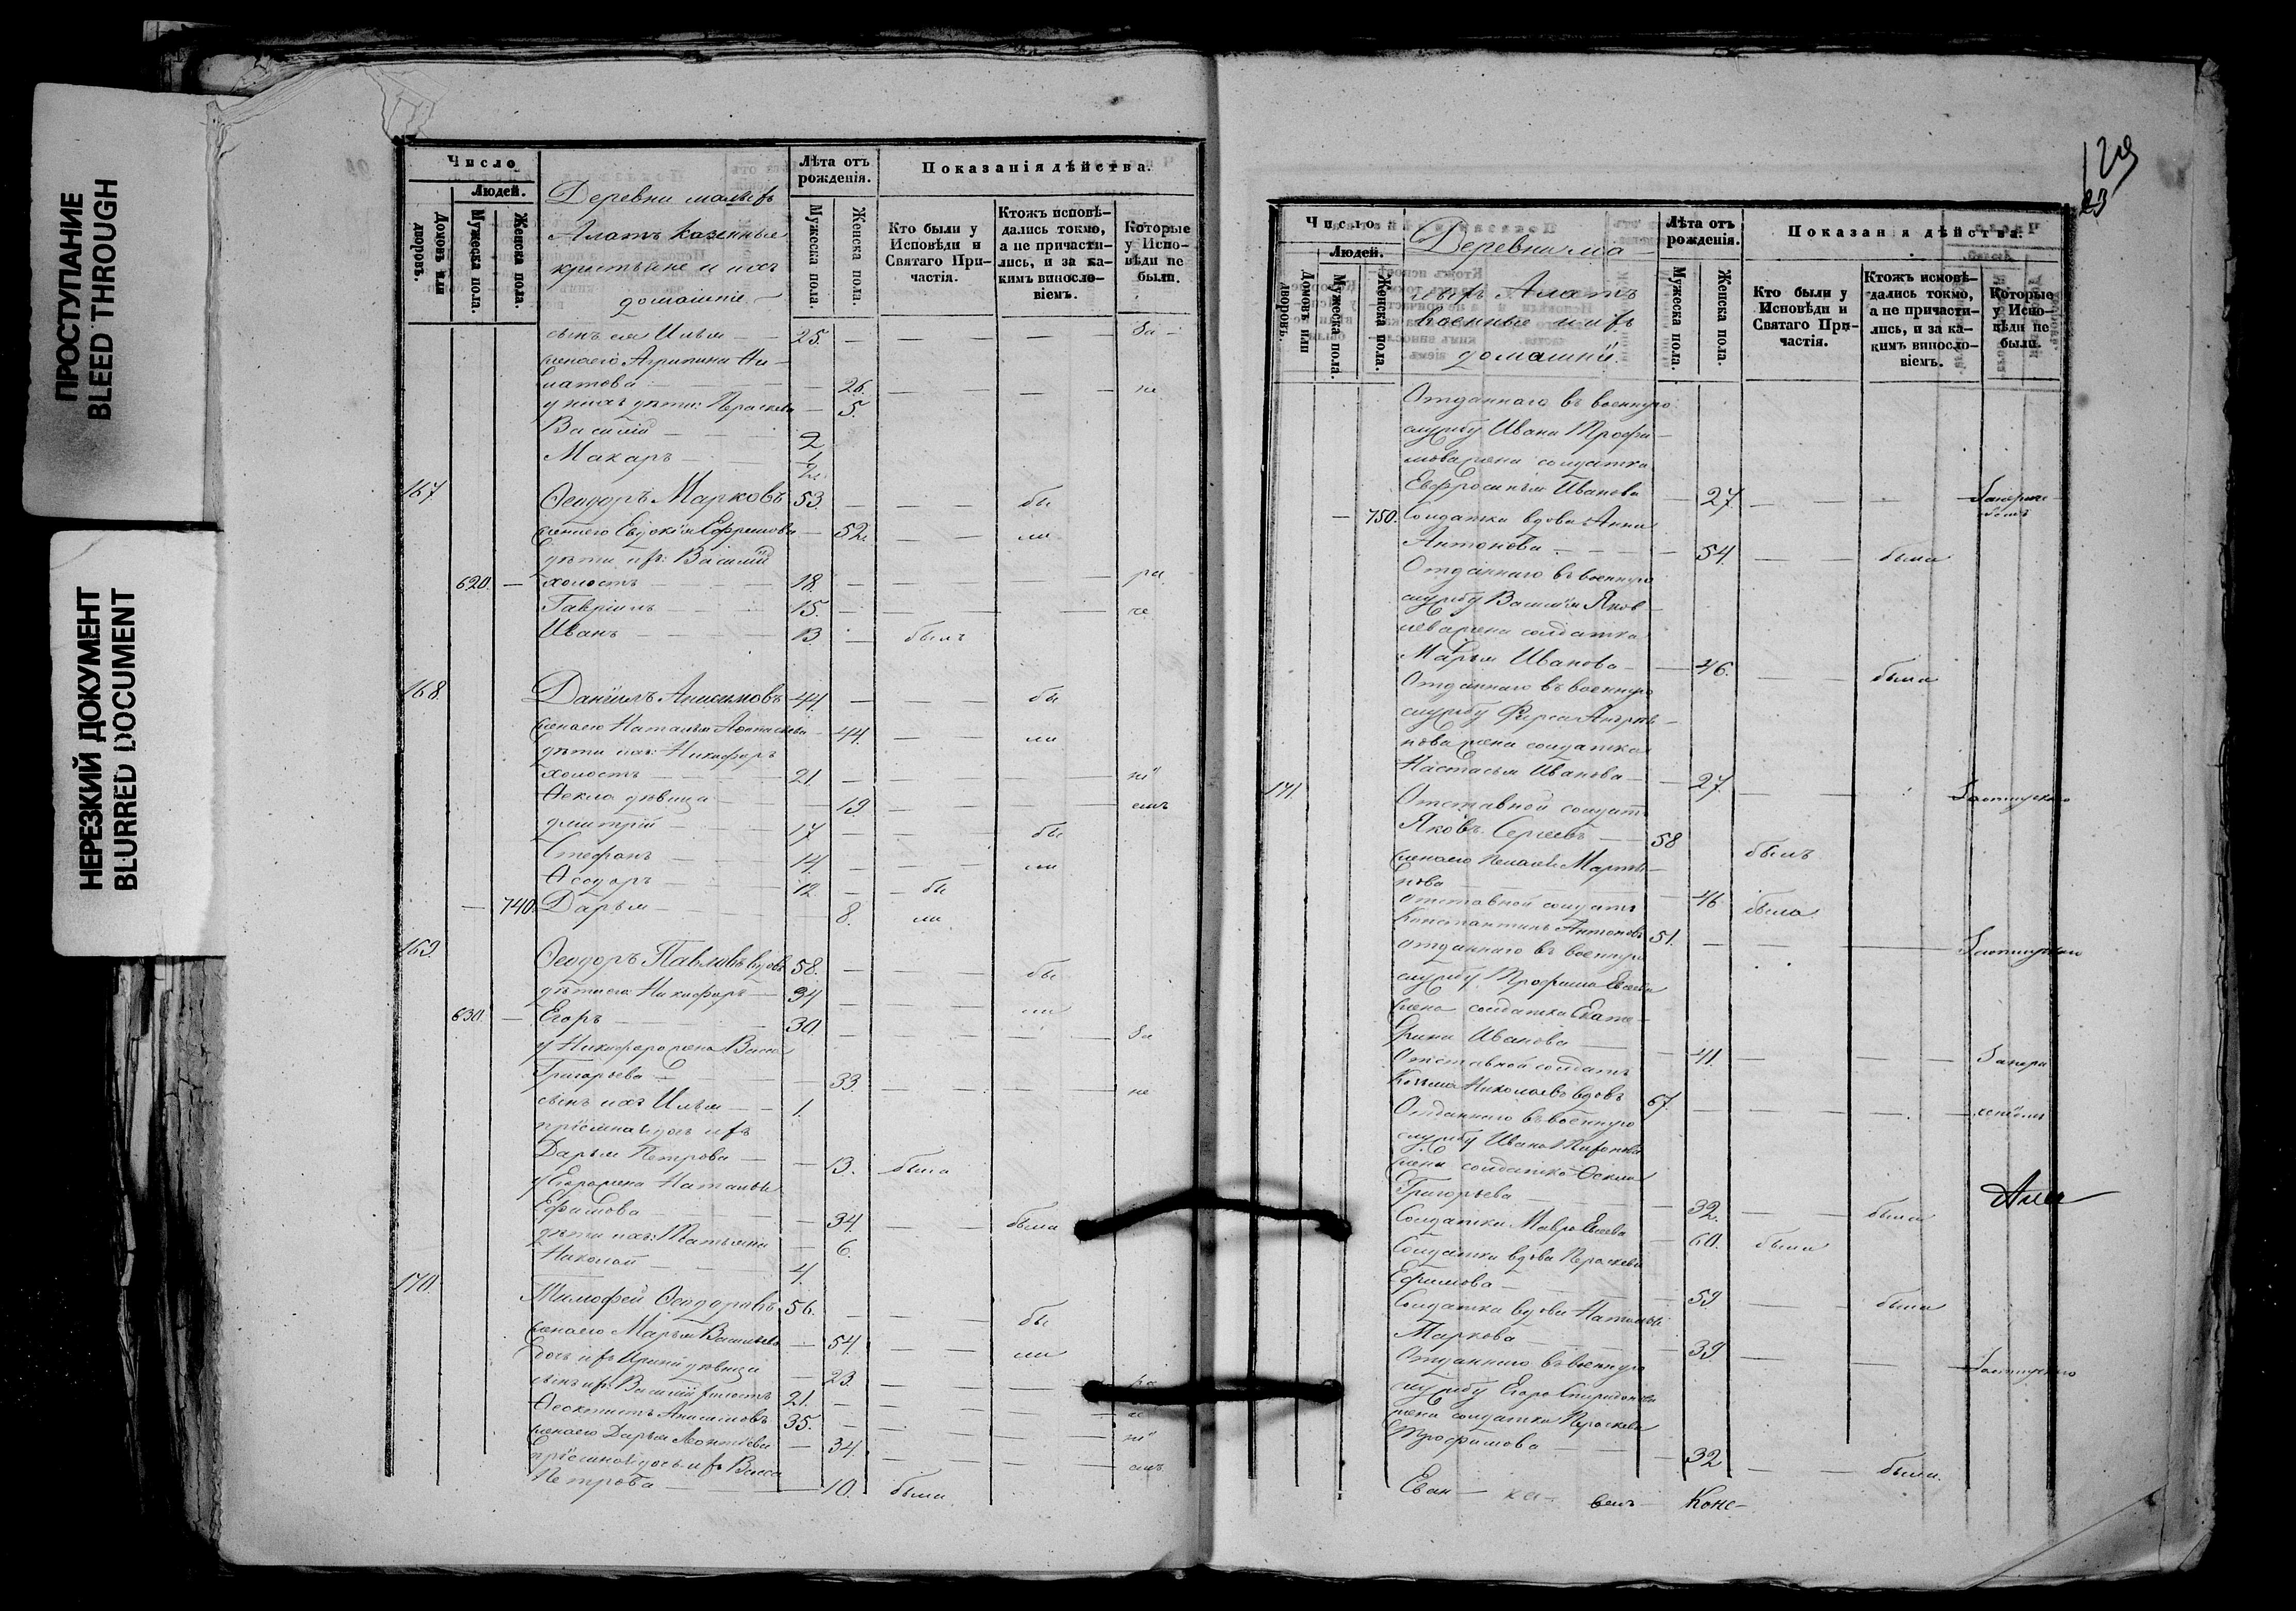 ПРОСТУПАНИЕ
BLEED THROUGH
НЕРЕЗКИЙ ДОКУМЕНТ
BLURRED DOCUMENT
Число
Людей.
Домовъ или дворовъ.
Мужеска пола.
Женска пола.
Деревни малыхъ
Алатъ казенные
крестьяне и ихъ
домашніе.
Лѣта отъ рожденія.
Мужеска пола.
Женска пола.
Показанія дѣйства.
Кто были у Исповѣди и Святаго Причастія.
Ктожъ исповѣдались токмо, а не причастились, и за какимъ винословіемъ.
Которые у Исповѣди не были.
сынъ ея Илья 25. за
жена его Агрипина Иг-
натова 26. не
у нихъ дѣти: Параскева 5.
Василій 2
Макаръ 1/2
167. Ѳеодоръ Марковъ 53. бы
жена его Евдокія Ефремова 52. ли
дѣти ихъ: Василій
620. холостъ 18. ра
Гавріилъ 15. че
Иванъ 13 былъ
168. Даніилъ Анисимовъ 44. бы
жена его Наталья 44. ли
дѣти ихъ: Никифоръ
холостъ 21. ні
Ѳекла дѣвица 19. емъ
Дмитрій 17 бы
Стефанъ 14. ли
Ѳеодоръ 12. бы
740. Дарья 8. ли
169. Ѳеодоръ Павловъ вдовъ 58. бы
дѣти его: Никифоръ 34 ли
630. Егоръ 30. за
у Никифора жена Васса
Григорьева 33 не
сынъ ихъ Илья 1.
пріемная дочь ихъ
Дарья Петрова 13. была
у Егора жена Наталья
Ефимова 34. была
дѣти ихъ: Татьяна 6.
Николай 4.
170. Тимофей Ѳеодоровъ 56. бы
жена его Марья Васильева 54. ли
дочь ихъ дѣвица 23. ра
сынъ ихъ Василій холостъ 21.
Ѳеоктистъ Анисимовъ 35. че
жена его Дарья Леонтьева 34. ні
пріемная дочь ихъ Васса емъ
Петрова 10. была
129
23
Число
Людей.
Домовъ или дворовъ.
Мужеска пола.
Женска пола.
Деревни ма-
лыхъ Алатъ
военные и ихъ
домашніи.
Лѣта отъ рожденія.
Мужеска пола.
Женска пола.
Показанія дѣйства.
Кто были у Исповѣди и Святаго Причастія.
Ктожъ исповѣдались токмо, а не причастились, и за какимъ винословіемъ.
Которые у Исповѣди не были.
Отданнаго въ военную
службу Ивана Трофи-
мова жена солдатка
Евфросинья Иванова 27.
750. Солдатка вдова Анна
Антонова 54. была
Отданнаго въ военную
службу Василья Яков-
лева жена солдатка
Марья Иванова 46. была
Отданнаго въ военную
службу
жена солдатка
Настасья Иванова 27.
171. Отставной солдатъ
Яковъ Сергеевъ 58 былъ
жена его Пелагея Марты-
нова 46 была
отставной солдатъ
Константинъ Антоновъ 51.
отданнаго въ военную
службу Трофима
жена солдатка Екате-
рина Иванова 41.
Отставной солдатъ
Козьма Николаевъ вдовъ 67.
Отданнаго въ военную
службу Ивана
жена солдатка Ѳекла
Григорьева 32. была
Солдатка Мавра 60. была
Солдатка вдова Параскева
Ефимова 59 была
Солдатка вдова Наталья
Маркова 39
Отданнаго въ военную
службу Егора Спиридонова
жена солдатка Параскева
Трофимова 32 была.